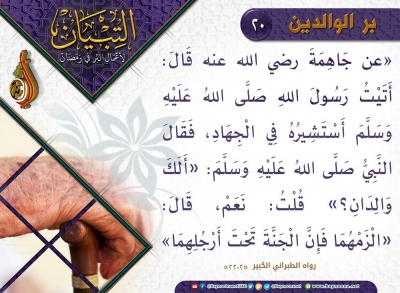 التبيان
لأعمال البر في رمضان
بر الوالدين
٢٠
«عن جاهمة رضي الله عنه قَالَ:
أَتَيْتُ رَسُولَ اللهِ صَلَّى اللهُ عَلَيْهِ
وَسَلَّمَ أَسْتَشِيرُهُ فِي الْجِهَادِ، فَقَالَ
النَّبِيُّ صَلَّى اللهُ عَلَيْهِ وَسَلَّمَ: «أَلَكَ
وَالِدَانِ؟» قُلْتُ: نَعَمْ، قَالَ:
«الْزَمْهُمَا فَإِنَّ الْجَنَّةَ تَحْتَ أَرْجُلِهِمَا»
رواه الطبراني الكبير «٢٢٠٢»